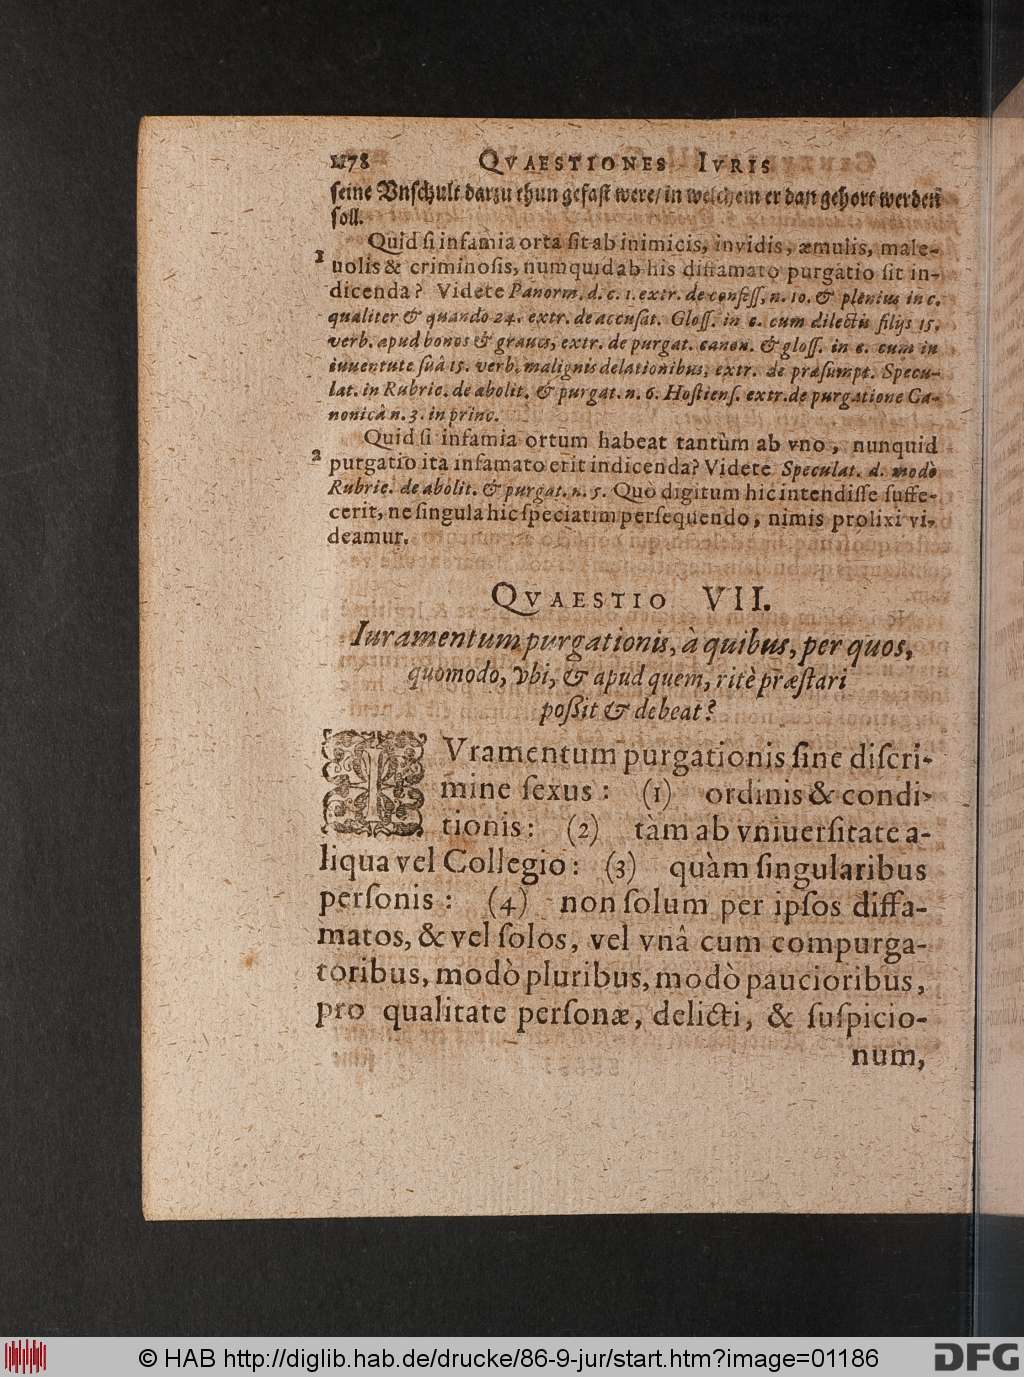 1178 QVAESTIONES IVRIS
seine Vnschult darzu thun gefast were/ in welchem er dañ gehort werden
soll.
Quid si infamia orta sit ab inimicis, invidis, æmulis, male-
1 uolis & criminosis, numquid ab his diffamato purgatio sit in-
dicenda? Videte Panorm. d. c. 1. extr. de confess. n. 10. & plenius in c.
qualiter & quando 24. extr. de accusat. Gloss. in c. cum dilectis filijs 15.
verb. apud bonos & graues, extr. de purgat. canon. & gloss. in c. cum in
iuuentute suâ 15. verb. malignis delationibus, extr. de præsumpt. Specu-
lat. in Rubric. de abolit. & purgat. n. 6. Hostiens. extr. de purgatione Ca-
nonicâ n. 3. in princ.
Quid si infamia ortum habeat tantùm ab vno, nunquid
2 purgatio ita infamato erit indicenda? Videte Speculat. d. modò
Rubric. de abolit. & purgat. n. 5. Quò digitum hic intendisse suffe-
cerit, ne singula hic speciatim persequendo, nimis prolixi vi-
deamur.
QVAESTIO VII.
Iuramentum purgationis, à quibus, per quos,
quomodo, vbi, & apud quem, ritè præstari
possit & debeat?
IVramentum purgationis sine discri-
mine sexus: (1) ordinis & condi-
tionis: (2) tàm ab vniuersitate a-
liqua vel Collegio: (3) quàm singularibus
personis: (4) non solum per ipsos diffa-
matos, & vel solos, vel vnâ cum compurga-
toribus, modò pluribus, modò paucioribus,
pro qualitate personæ, delicti, & suspicio-
num,
© HAB http://diglib.hab.de/drucke/86-9-jur/start.htm?image=01186
DFG